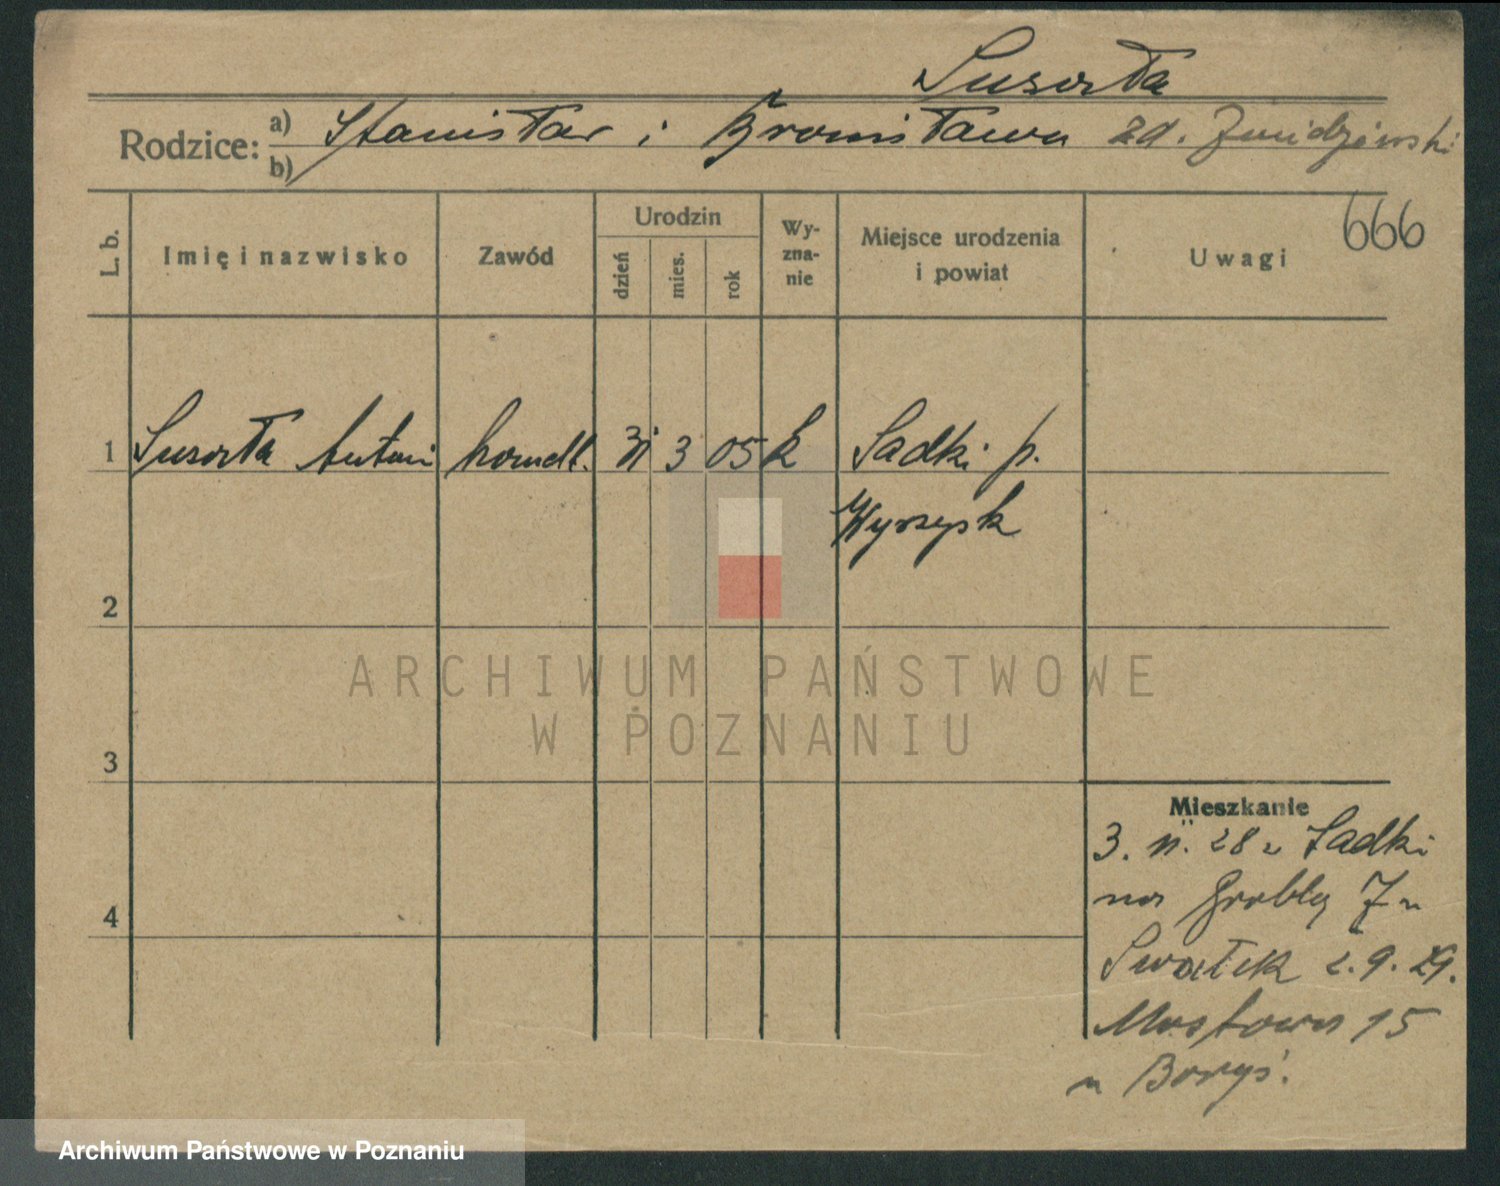 Susorła
Rodzice: a) Stanisław i Bronisława zd.
b)
666
L. b.
Imię i nazwisko
Zawód
Urodzin
dzień
mies.
rok
Wy-
zna-
nie
Miejsce urodzenia
i powiat
Uwagi
1 Susorła Antoni handl. 31 3 05 k Sadki p.
Wyrzysk
2
3
4
Mieszkanie
3. 11. 28 z Sadki
na Grobla 7 u
2.9.29.
Mostowa 15
u Boryś.
ARCHIWUM PAŃSTWOWE
W POZNANIU
Archiwum Państwowe w Poznaniu